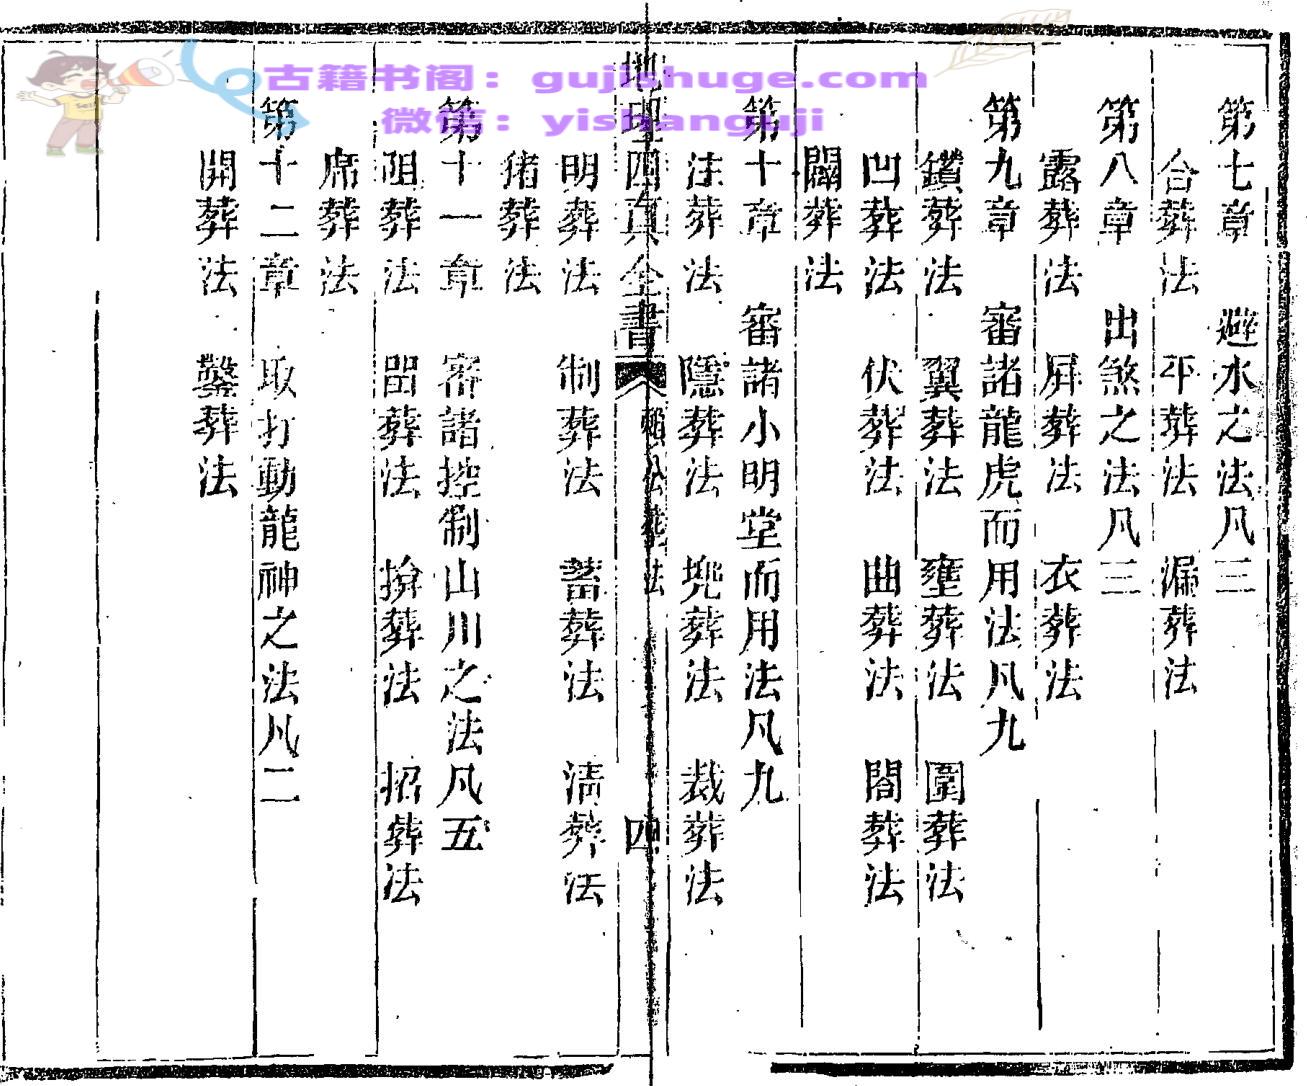 第七章　避水之法凡三
合葬法　平葬法　漏葬法
第八章　出煞之法凡三
露葬法　屏葬法　衣葬法
第九章　審諸龍虎而用法凡九
鑽葬法　翼葬法　壅葬法　圍葬法
凹葬法　伏葬法　曲葬法　閤葬法
闢葬法
第十章　審諸小明堂而用法凡九
注葬法　隱葬法　兠葬法　裁葬法
地理四真全書　賴公葬法　四
明葬法　制葬法　蓄葬法　清葬法
猪葬法
第十一章　審諸控制山川之法凡五
阻葬法　留葬法　揜葬法　招葬法
席葬法
第十二章　取打動龍神之法凡二
開葬法　鑿葬法
古籍书阁：gujishuge.com
微信：yishanguji